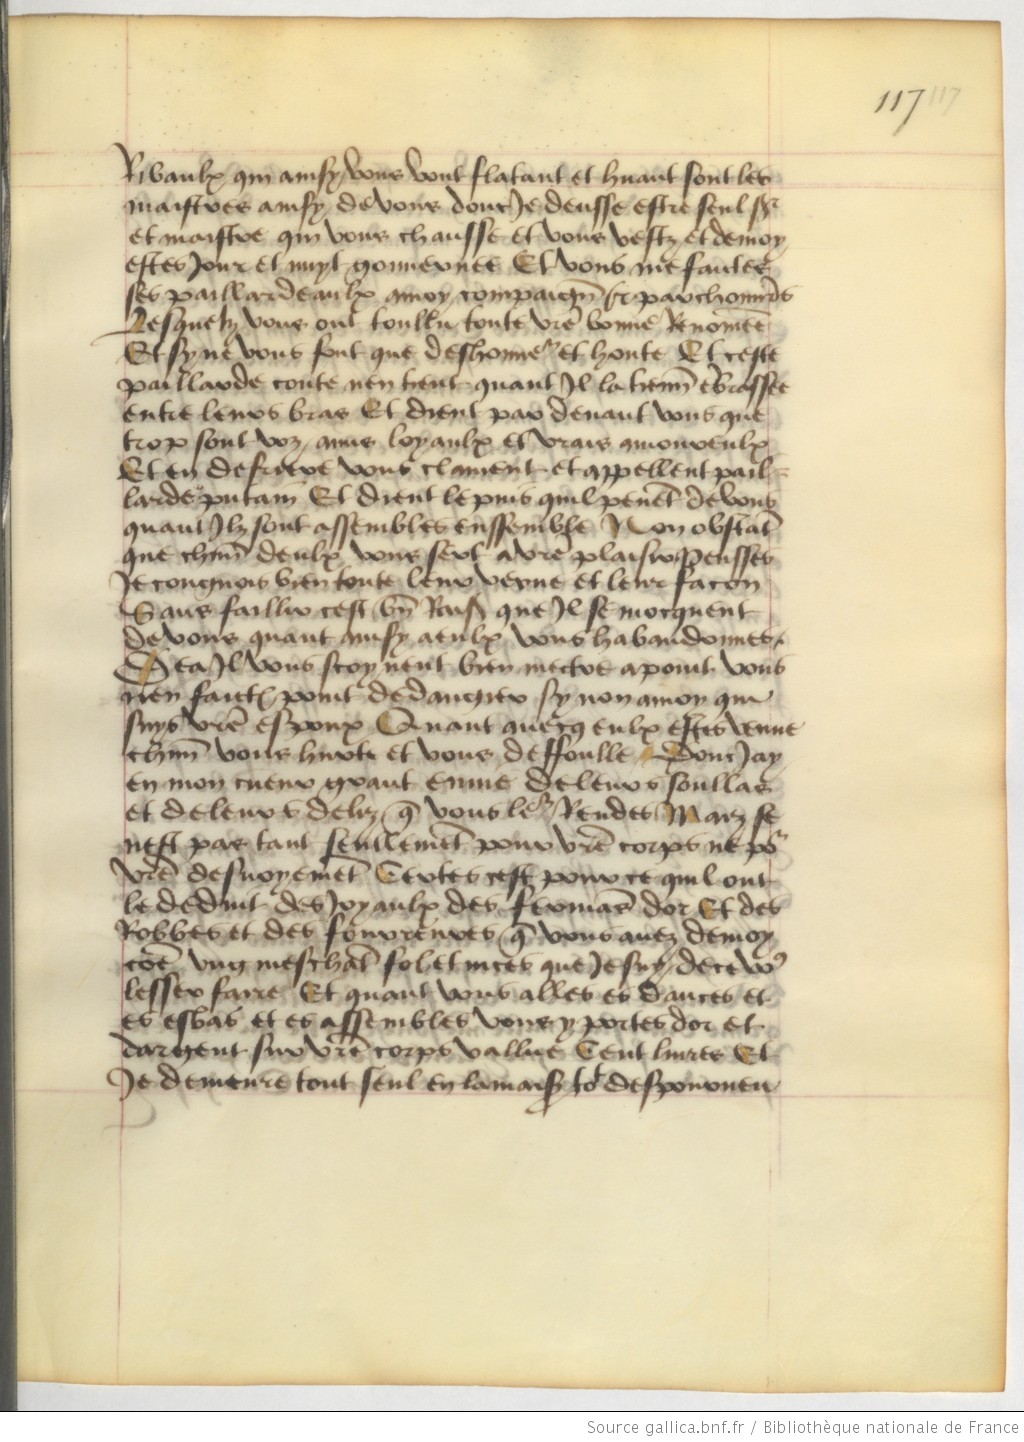 117 117
Ribaulx qui ainsy vous vont flatant et huant sont les
maistres ainsy de vous donc Je deusse estre seul sr
et maistre qui vous chausse et vous vestz et de moy
estes Jour et nuyt gouvernee Et vous me faictes
ses paillardeaulx amoy compaign et parchonniers
Lesquelz vous ont toullu toute vre bonne Renomee
Et sy ne vous font que deshonneur et honte Et ceste
paillarde conte nen tient quant Il la tienn ebrassee
entre leurs bras Et dient par devant vous que
trop sont voz amis loyaulx et vrais amoureulx
Et en derriere vous clament et appellent pail
larde putain Et dient le puis quil peuet de vous
quant Ilz sont assembles enssemble Non obstat
que chun deulx vous sert a vre plaisir Pensses
Je congnois bien toute leur verue et leur facon
Sans faillir cest bn Rais que Il se mocquent
de vous quant ainsy a eulx vous habandonnes
Dea Il vous scoyvent bien mectre a point vous
nen faictes point de dangier sy non a moy qui
suys vre espoux Quant avecq eulx estes venue
chun vous hurte et vous deffoulle Donc Jay
en mon cueur grant envie de leurs soullas
et de leurs deliz q vous ler Rendes Marz se
nest pas tant seullemet pour vre corps ne pr
vre desnoyemet Certes cest pour ce quil ont
le deduit des Joyaulx des fermaes dor Et des
Robbes et des fourreures q vous avez de moy
coe ung meschat fol et nices que Je suy de ce vos
lesser faire Et quant vous alles es dances et
es esbas et es assembles vous y portes dor et
dargent sur vre corps vallue Cent livres Et
Je demeure tout seul en la mais to despourveu
Source gallica.bnf.fr / Bibliothèque nationale de France